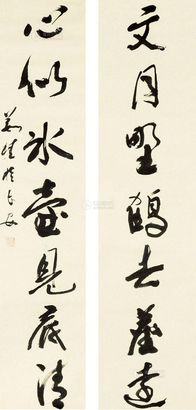 文同野鶴去塵遠
心似冰壺見底清